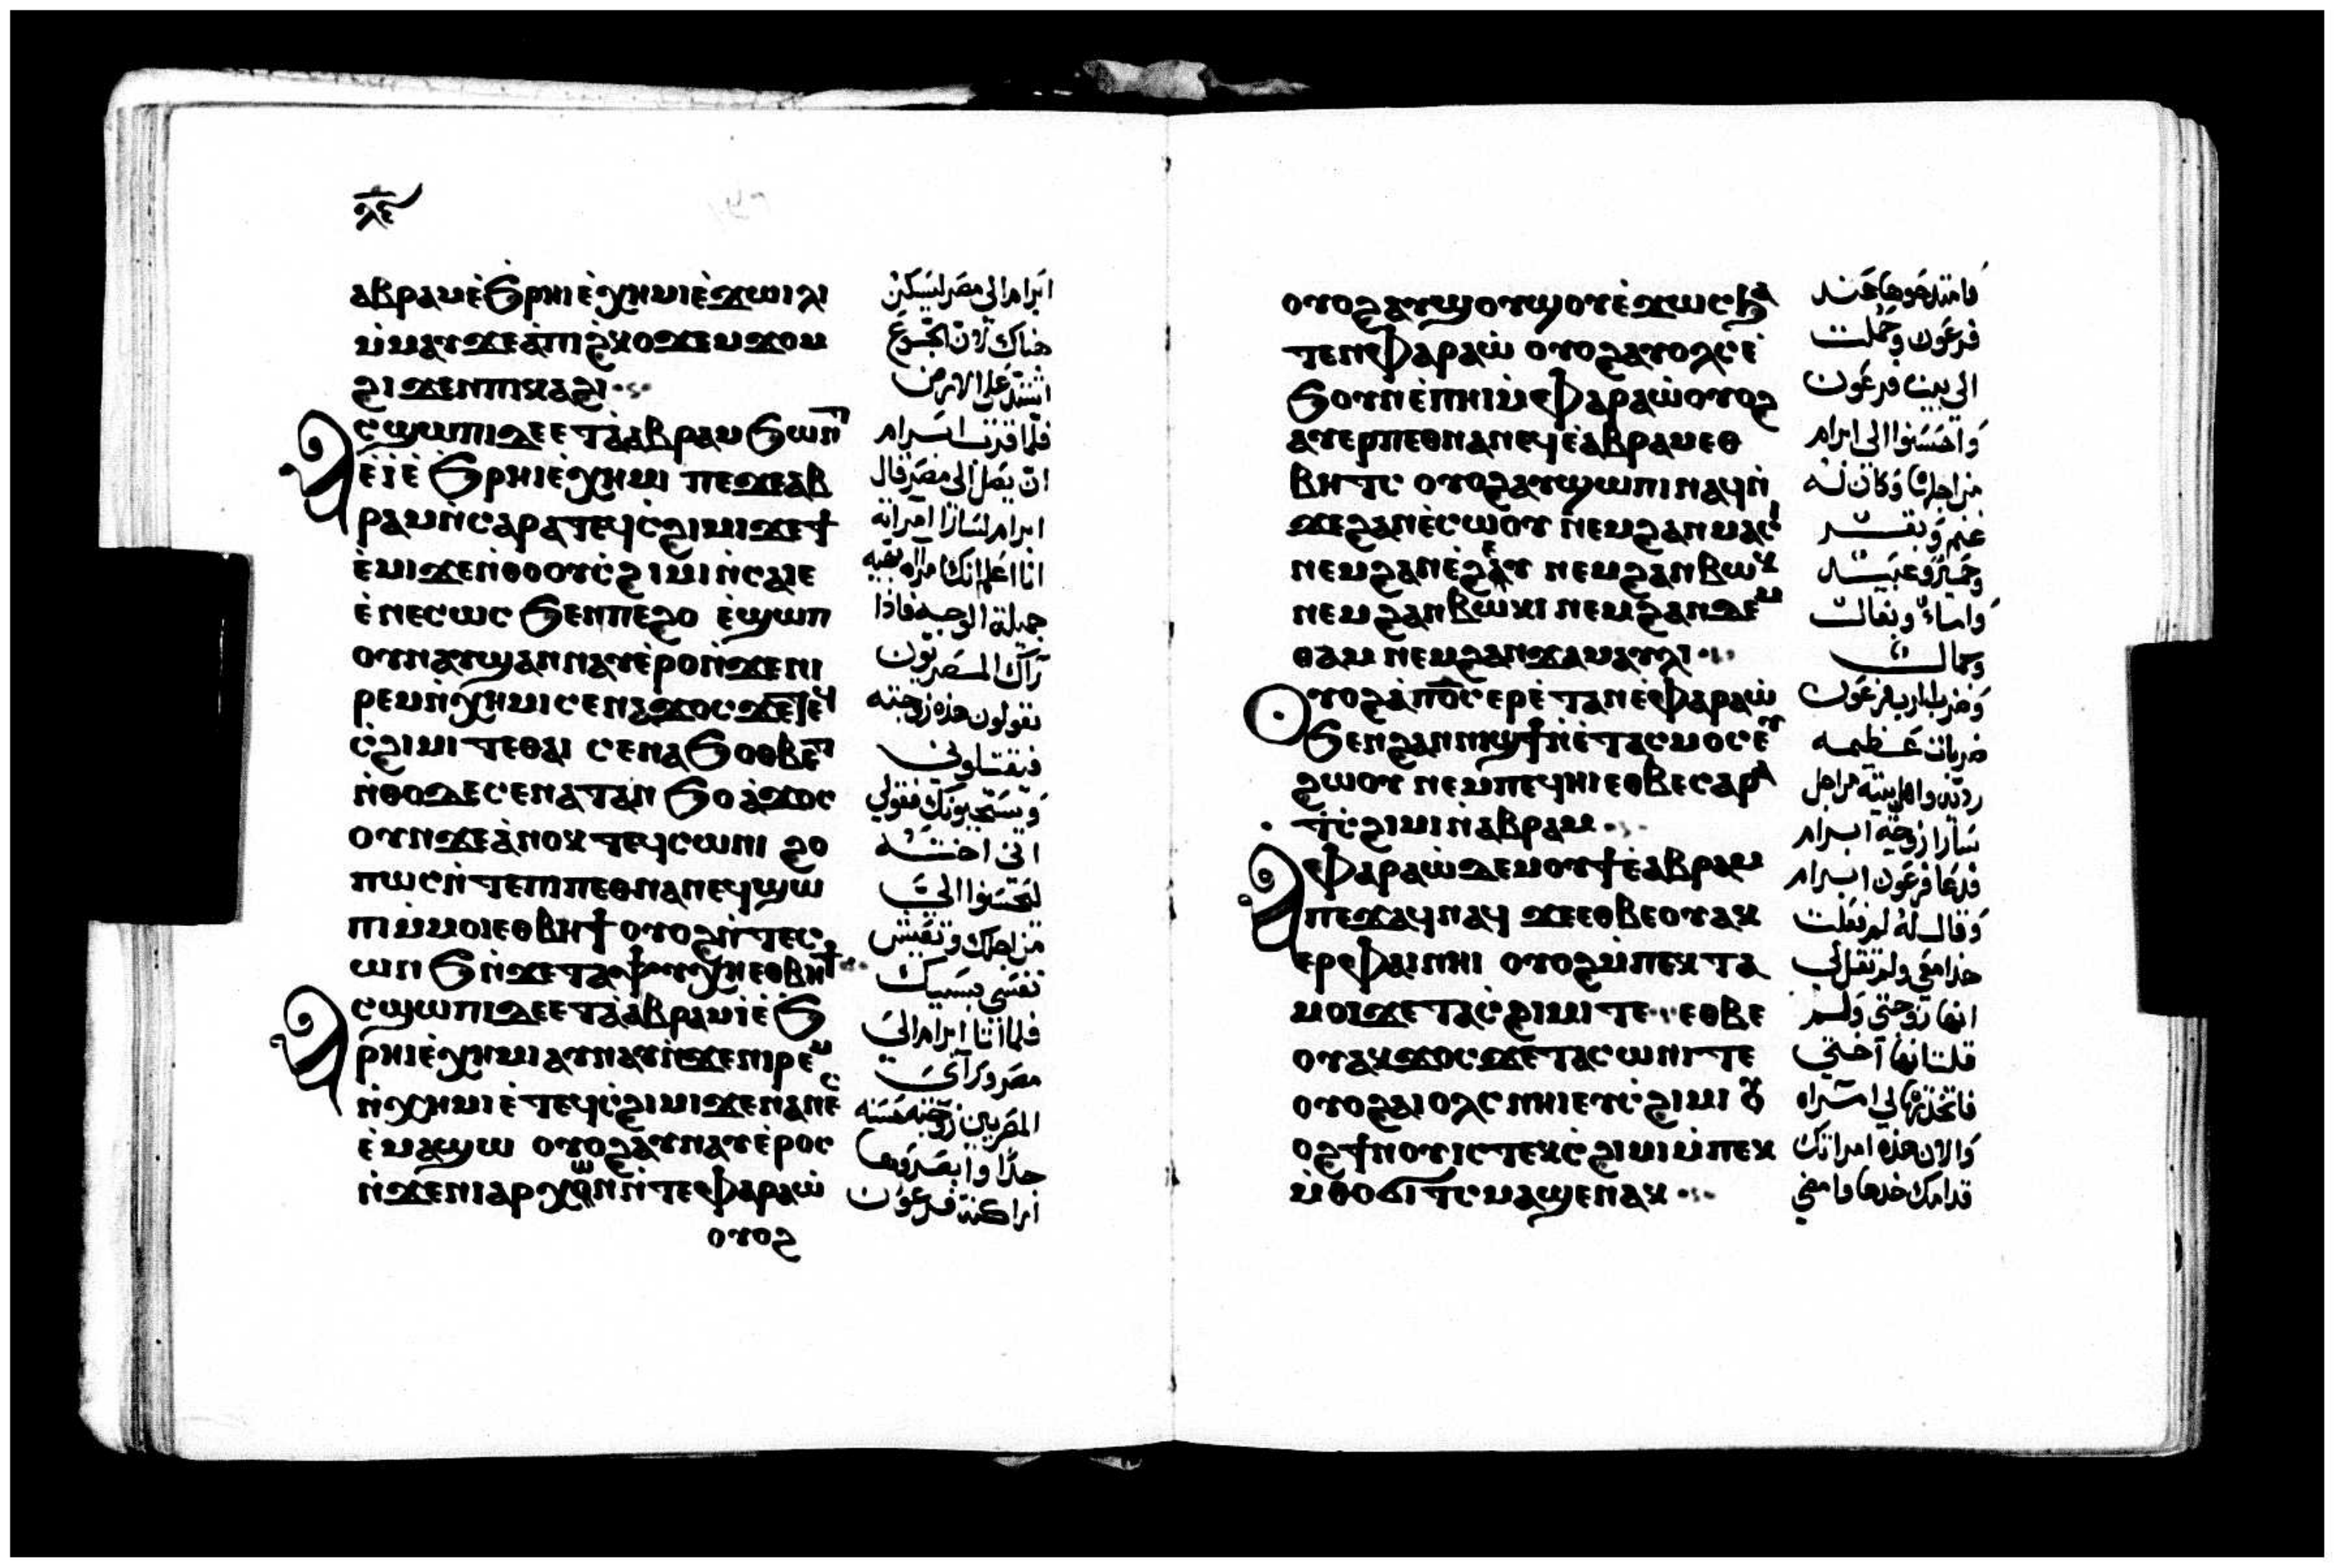 ⲗ̅ⲉ̅
ⲁⲃⲣⲁⲙ ⲉ̀ϧⲣⲏⲓ ⲉ̀ⲭⲏⲙⲓ ⲉ̀ϫⲱⲓⲗⲓ
ⲙ̀ⲙⲁⲩ ϫⲉ ⲁ̀ⲡⲓϩ̀ⲕⲟ ϫⲉⲙϫⲟⲙ
ϩⲓϫⲉⲛ ⲡⲓⲕⲁϩⲓ
ⲁⲥϣⲱⲡⲓ ⲇⲉ ⲉⲧⲁ̀ⲁⲃⲣⲁⲙ ϧⲱⲛⲧ
ⲉ̀ⲓ̀ⲉ̀ ϧⲣⲏⲓ ⲉ̀ⲭⲏⲙⲓ ⲡⲉϫⲉ ⲁⲃ
ⲣⲁⲙ ⲛ̀ⲥⲁⲣⲁ ⲧⲉϥⲥ̀ϩⲓⲙⲓ ϫⲉ ϯ
ⲉ̀ⲙⲓ ϫⲉ ⲛ̀ⲑⲟ ⲟⲩⲥ̀ϩⲓⲙⲓ ⲛ̀ⲥⲁⲓⲉ
ⲉ̀ⲛⲉⲥⲱⲥ ϧⲉⲛ ⲡⲉϩⲟ ⲉ̀ϣⲱⲡ
ⲟⲩⲛ ⲁⲩϣⲁⲛⲛⲁⲩ ⲉ̀ⲣⲟ ⲛ̀ϫⲉ ⲛⲓ
ⲣⲉⲙⲛ̀ⲭⲏⲙⲓ ⲥⲉⲛⲁϫⲟⲥ ϫⲉ ⲧⲉϥ
ⲥ̀ϩⲓⲙⲓ ⲧⲉ ⲑⲁⲓ ⲥⲉⲛⲁϧⲟⲑⲃⲉⲧ
ⲛ̀ⲑⲟ ⲇⲉ ⲥⲉⲛⲁⲧⲁⲛϧⲟ ⲁ̀ϫⲟⲥ
ⲟⲩⲛ ϫⲉ ⲁ̀ⲛⲟⲕ ⲧⲉϥⲥⲱⲛⲓ ϩⲟ
ⲡⲱⲥ ⲛ̀ⲧⲉ ⲡⲓⲡⲉⲑⲛⲁⲛⲉϥ ϣⲱ
ⲡⲓ ⲙ̀ⲙⲟⲓ ⲉⲑⲃⲏϯ ⲟⲩⲟϩ ⲛ̀ⲧⲉⲥ
ⲱⲛϧ ⲛ̀ϫⲉ ⲧⲁⲯⲩⲭⲏ ⲉⲑⲃⲏϯ
ⲁⲥϣⲱⲡⲓ ⲇⲉ ⲉⲧⲁ̀ⲁⲃⲣⲁⲙ ⲓ̀ ⲉ̀ϧ
ⲣⲏⲓ ⲉ̀ⲭⲏⲙⲓ ⲁⲩⲛⲁⲩ ⲛ̀ϫⲉ ⲛⲓⲣⲉⲙ
ⲛ̀ⲭⲏⲙⲓ ⲉ̀ⲧⲉϥⲥ̀ϩⲓⲙⲓ ϫⲉ ⲛⲁⲛⲉⲥ
ⲉ̀ⲙⲁϣⲱ ⲟⲩⲟϩ ⲁⲩⲛⲁⲩ ⲉ̀ⲣⲟⲥ
ⲛ̀ϫⲉ ⲛⲓⲁⲣⲭⲱⲛ ⲛ̀ⲧⲉ ⲫⲁⲣⲁⲱ̀
ⲟⲩⲟϩ
ابرام الى مصر ليسكن
هناك لان الجوع
اشتد على الارض
فلما قرب ابرام
ان يصل الى مصر قال
ابرام لسارا امراته
انا اعلم انك امراه نقيه
جميلة الوجه فاذا
رآك المصريون
يقولون هذه زوجته
فيقتلوني
ويستحيونك فقولي
انى اخته
ليحسنوا الى
من اجلك وتعيش
نفسى بسببك
فلما اتا ابرام الى
مصر وراى
المصريين زوجته حسنه
جدًا وابصروها
اراكنة فرعون
ⲟⲩⲟϩ ⲁⲩϣⲟⲩϣⲟⲩ ⲉ̀ϫⲱⲥ ϧⲁ
ⲧⲉⲛ ⲫⲁⲣⲁⲱ̀ ⲟⲩⲟϩ ⲁⲩⲟⲗⲥ ⲉ̀
ϧⲟⲩⲛ ⲉ̀ⲡⲏⲓ ⲙ̀ⲫⲁⲣⲁⲱ̀ ⲟⲩⲟϩ
ⲁⲩⲉⲣⲡⲉⲑⲛⲁⲛⲉϥ ⲉ̀ⲁⲃⲣⲁⲙ ⲉⲑ
ⲃⲏⲧⲥ ⲟⲩⲟϩ ⲁⲩϣⲱⲡⲓ ⲛⲁϥ ⲛ̀
ϫⲉ ϩⲁⲛⲉ̀ⲥⲱⲟⲩ ⲛⲉⲙ ϩⲁⲛⲙⲁⲥⲓ
ⲛⲉⲙ ϩⲁⲛⲉ̀ϩⲉⲩ ⲛⲉⲙ ϩⲁⲛⲃⲱⲕ
ⲛⲉⲙ ϩⲁⲛⲃⲱⲕⲓ ⲛⲉⲙ ϩⲁⲛϫⲉⲙ
ⲑⲁⲙ ⲛⲉⲙ ϩⲁⲛϫⲁⲙⲁⲩⲗⲓ
ⲟⲩⲟϩ ⲁ̀ⲡⲟ̅ⲥ̅ ⲉⲣⲉ̀ⲧⲁⲛ ⲉ̀ⲫⲁⲣⲁⲱ̀
ϧⲉⲛ ϩⲁⲛⲛⲓϣϯ ⲛ̀ⲉ̀ⲧⲁⲥⲙⲟⲥ ⲉⲩ
ϩⲱⲟⲩ ⲛⲉⲙ ⲡⲉϥⲏⲓ ⲉⲑⲃⲉ ⲥⲁⲣⲁ
ⲧ̀ⲥ̀ϩⲓⲙⲓ ⲛ̀ⲁⲃⲣⲁⲙ
ⲁⲫⲁⲣⲁⲱ̀ ⲇⲉ ⲙⲟⲩϯ ⲉ̀ⲁⲃⲣⲁⲙ
ⲡⲉϫⲁϥ ⲛⲁϥ ϫⲉ ⲉⲑⲃⲉ ⲟⲩ ⲁⲕ
ⲉⲣ ⲫⲁⲓ ⲛⲏⲓ ⲟⲩⲟϩ ⲙ̀ⲡⲉⲕⲧⲁ
ⲙⲟⲓ ϫⲉ ⲧⲁⲥ̀ϩⲓⲙⲓ ⲧⲉ ⲉⲑⲃⲉ
ⲟⲩ ⲁⲕϫⲟⲥ ϫⲉ ⲧⲁⲥⲱⲛⲓ ⲧⲉ
ⲟⲩⲟϩ ⲁⲓⲟⲗⲥ ⲛⲏⲓ ⲉⲩⲥ̀ϩⲓⲙⲓ ⲟⲩ
ⲟϩ ϯⲛⲟⲩ ⲓⲥ ⲧⲉⲕⲥ̀ϩⲓⲙⲓ ⲙ̀ⲡⲉⲕ
ⲙ̀ⲑⲟ ϭⲓⲧⲥ ⲙⲁϣⲉⲛⲁⲕ
فامتدحوها عند
فرعون وحملت
الى بيت فرعون
واحسنوا الى ابرام
من اجلها وكان له
غنم وبقر
وحمير وعبيد
واماء وبغالت
وجمال
وضرب الرب فرعون
ضربات عظيمه
رديه واهل بيته من اجل
سارا زوجة ابرام
فدعا فرعون ابرام
وقال له لم فعلت
هذا معي ولم تقل لى
انها زوجتي ولم
قلت انها اختي
فاتخذتها لي امراه
والان هذه امراتك
قدامك خذها وامضي